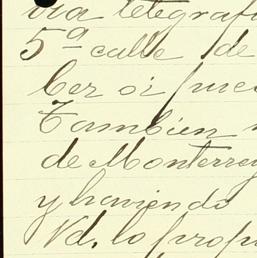 via telegrafi
5ª calle de
ber si pue
Tambien
de Monterrey
y haviendo
Vd. lo prop